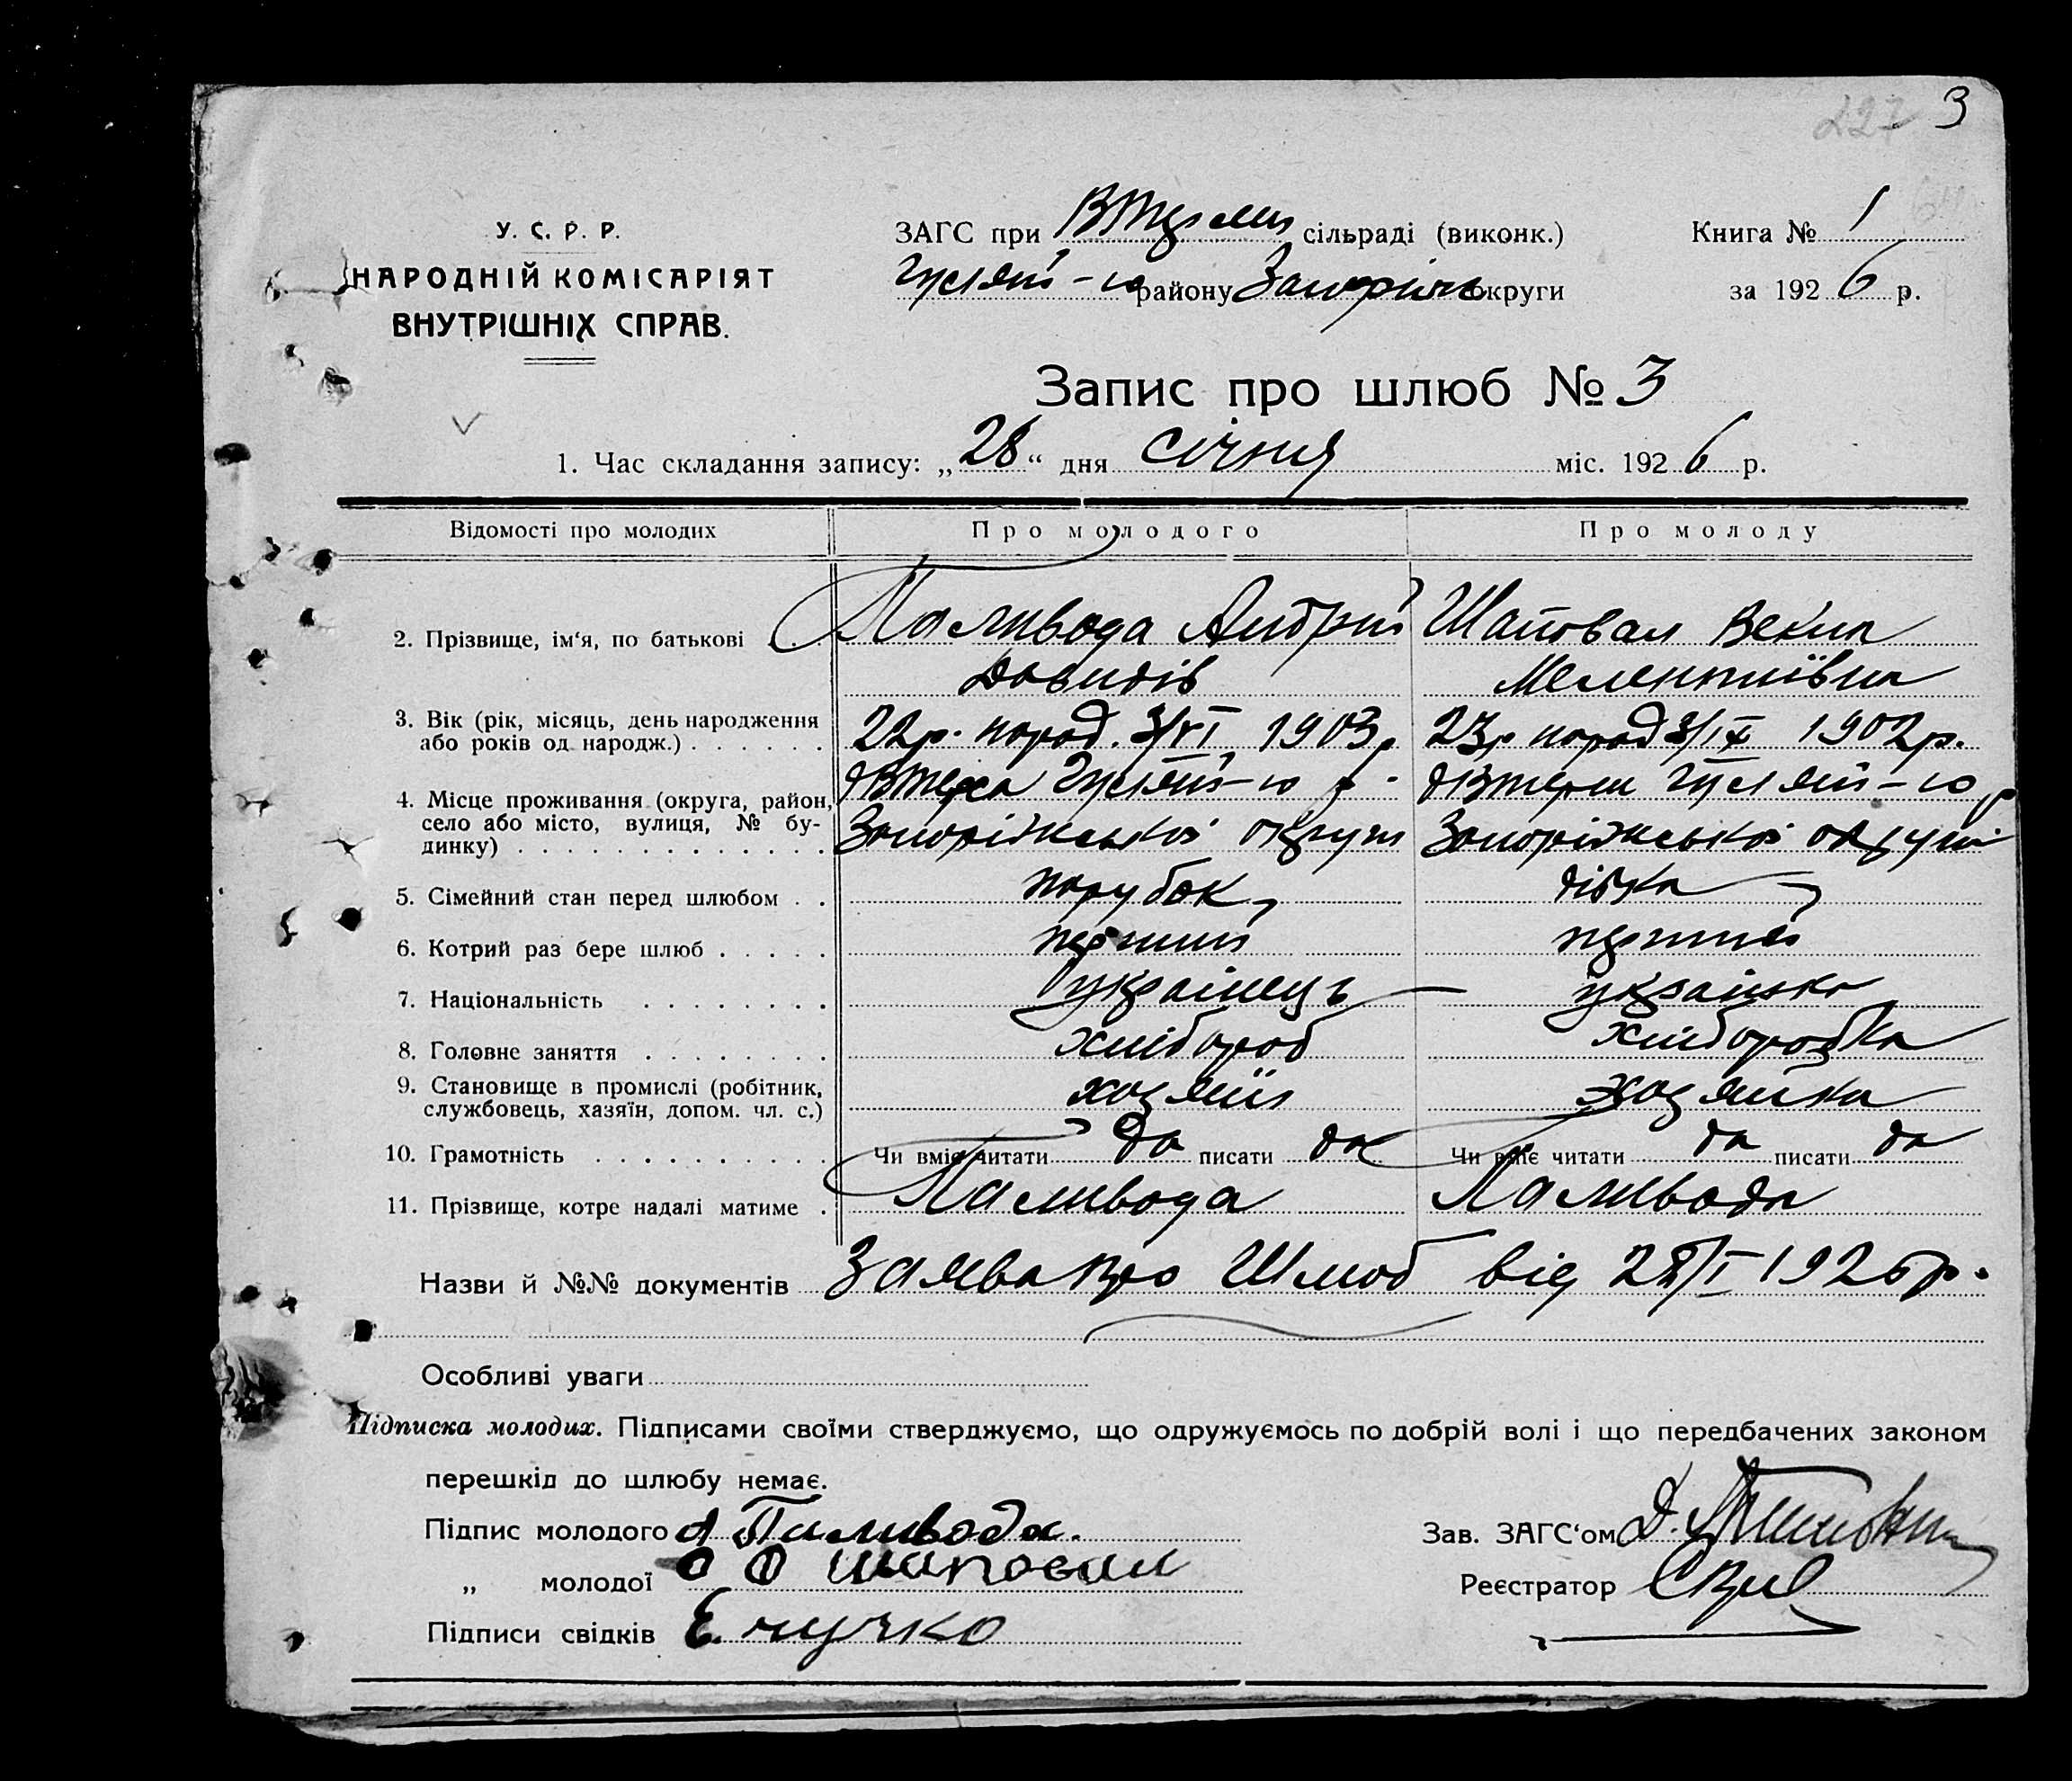 3
У. С. Р. Р.
НАРОДНІЙ КОМІСАРІЯТ
ВНУТРІШНІХ СПРАВ.
ЗАГС при сільраді (виконк.)
Книга № 1
району округи
за 1926 р.
Запис про шлюб № 3
1. Час складання запису: „28“ дня січня міс. 1926 р.
Відомості про молодих Про молодого Про молоду
2. Прізвище, ім‘я, по батькові . . Паливода Андрій Шаповал Векла
Давидів Мелентиївна
3. Вік (рік, місяць, день народження
або років од народж.) . . . . . . 22р. нород. 3/VI 1903р. 23р нород 8/IX 1902р.
4. Місце проживання (округа, район,
село або місто, вулиця, № бу-
динку) . . . . . . . . . . . . . Запоріжської округи Запоріжської округи
5. Сімейний стан перед шлюбом . . порубок дівка
6. Котрий раз бере шлюб . . . . . перший перший
7. Національність . . . . . . . . українець українка
8. Головне заняття . . . . . . . . хлібороб хліборобка
9. Становище в промислі (робітник,
службовець, хазяїн, допом. чл. с.) хозяїн хозяйка
10. Грамотність . . . . . . . . . . Чи вміє читати да писати да Чи вміє читати да писати да
11. Прізвище, котре надалі матиме . Паливода Паливода
Назви й №№ документів Заява про Шлюб від 28/I 1926р.
Особливі уваги
Підписка молодих. Підписами своїми стверджуємо, що одружуємось по добрій волі і що передбачених законом
перешкід до шлюбу немає.
Підпис молодого А Паливода.
Зав. ЗАГС‘ом
„ молодої шаповал
Реєстратор
Підписи свідків Е.